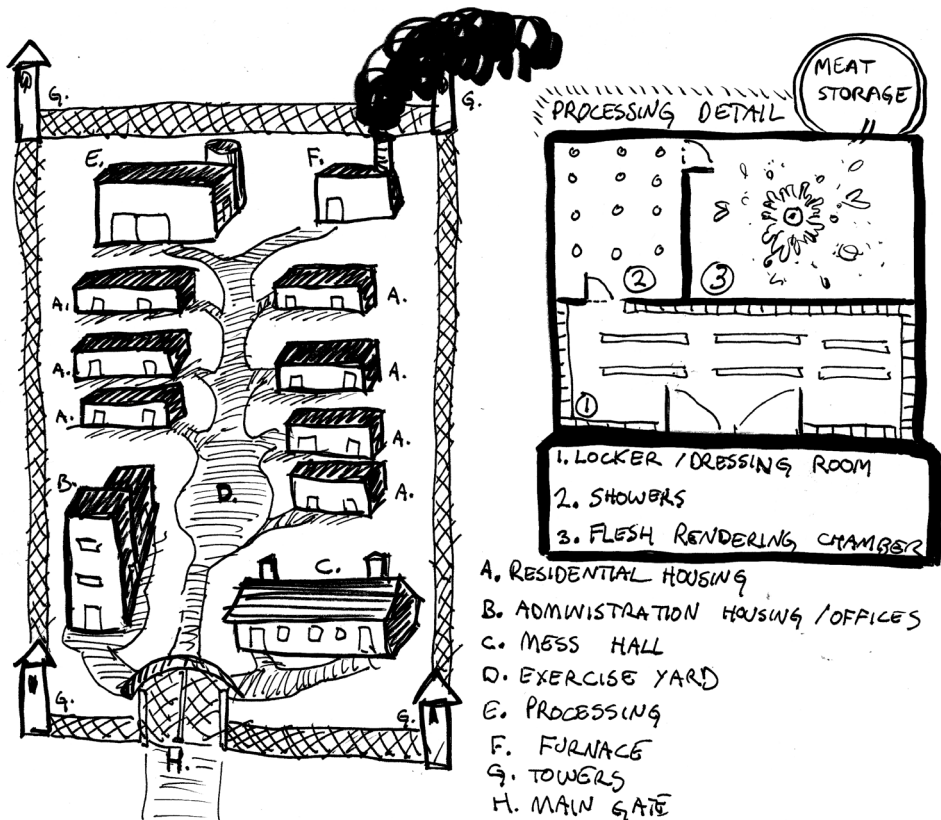 G.
G.
E.
F.
A.
A.
A.
A.
A.
A.
A.
B.
D.
C.
G.
G.
H.
MEAT
STORAGE
PROCESSING DETAIL
2
3
1
1. LOCKER / DRESSING ROOM
2. SHOWERS
3. FLESH RENDERING CHAMBER
A. RESIDENTIAL HOUSING
B. ADMINISTRATION HOUSING / OFFICES
C. MESS HALL
D. EXERCISE YARD
E. PROCESSING
F. FURNACE
G. TOWERS
H. MAIN GATE